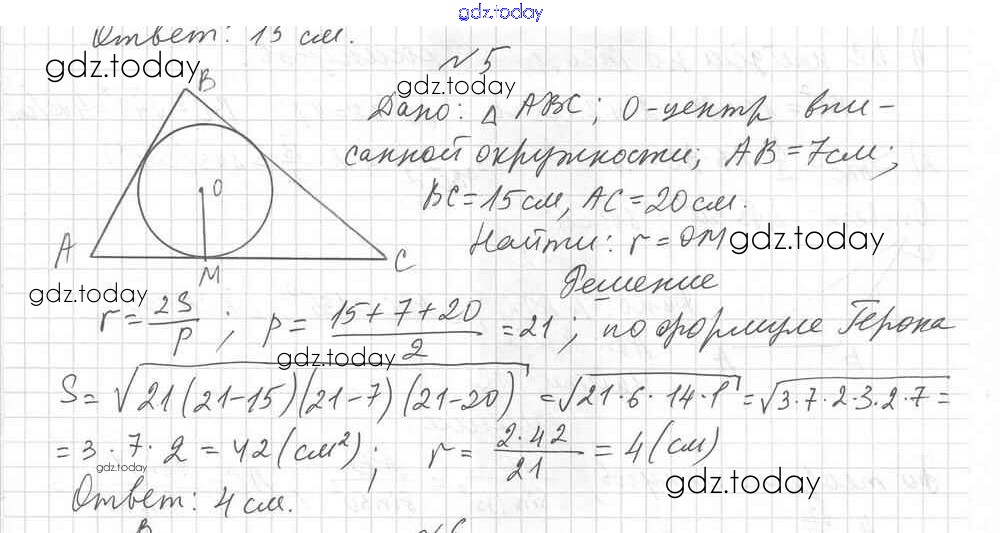 gdz.today
Ответ: 15 см.
gdz.today
№5
gdz.today
B
Дано: △ ABC; O-центр впи-
санной окружности; AB = 7см;
BC = 15 см, AC = 20 см.
O
A
C
M
Найти: r = OM
gdz.today
Решение
gdz.today
r = 2S/p ; p = (15 + 7 + 20)/2 = 21 ; по формуле Герона
gdz.today
S = √(21(21-15)(21-7)(21-20)) = √(21·6·14·1) = √(3·7·2·3·2·7) =
= 3·7·2 = 42 (см²); r = (2·42)/21 = 4 (см)
gdz.today
gdz.today
Ответ: 4 см.
B
№6